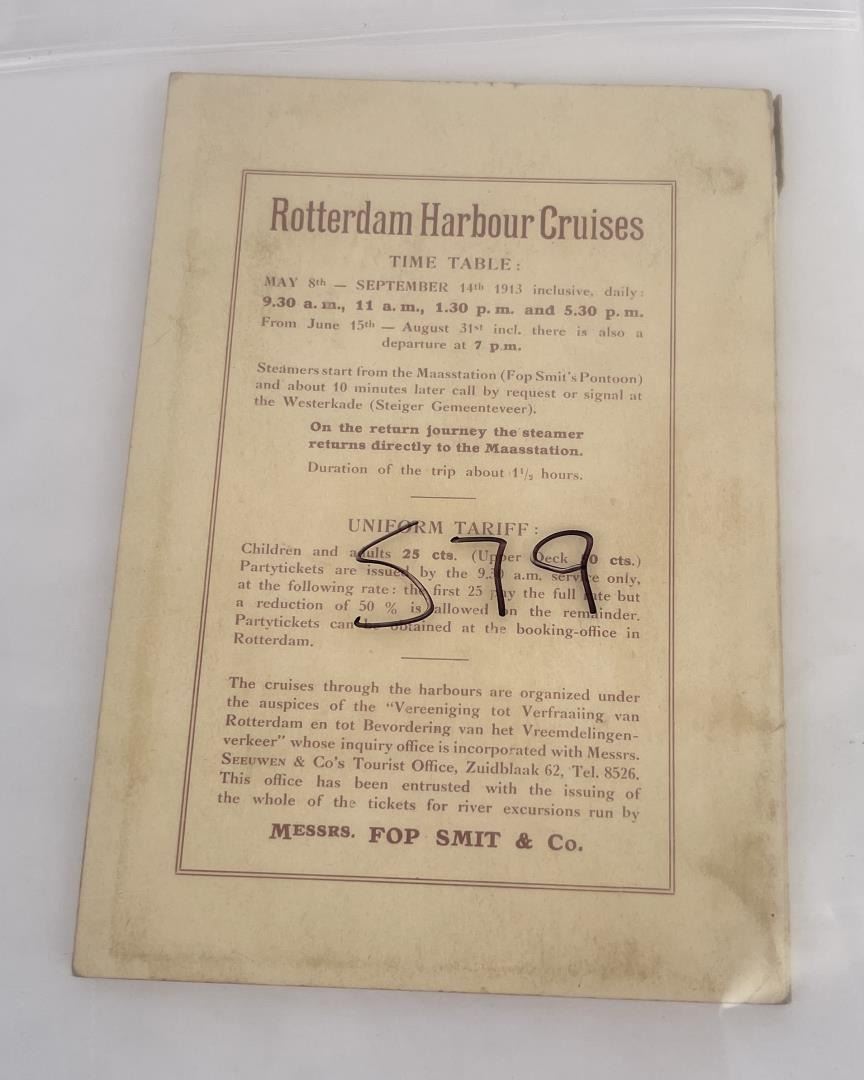 Rotterdam Harbour Cruises
TIME TABLE:
MAY 8th — SEPTEMBER 14th 1913 inclusive, daily:
9.30 a. m., 11 a. m., 1.30 p. m. and 5.30 p. m.
From June 15th — August 31st incl. there is also a
departure at 7 p.m.
Steamers start from the Maasstation (Fop Smit's Pontoon)
and about 10 minutes later call by request or signal at
the Westerkade (Steiger Gemeenteveer).
On the return journey the steamer
returns directly to the Maasstation.
Duration of the trip about 1 1/2 hours.
UNIFORM TARIFF:
Children and adults 25 cts. (Upper Deck cts.)
Partytickets are issued by the 9.30 a.m. service only,
at the following rate: the first 25 pay the full rate but
a reduction of 50 % is allowed on the remainder.
Partytickets can be obtained at the booking-office in
Rotterdam.
579
The cruises through the harbours are organized under
the auspices of the "Vereeniging tot Verfraaiing van
Rotterdam en tot Bevordering van het Vreemdelingen-
verkeer" whose inquiry office is incorporated with Messrs.
SEEUWEN & Co's Tourist Office, Zuidblaak 62, Tel. 8526.
This office has been entrusted with the issuing of
the whole of the tickets for river excursions run by
MESSRS. FOP SMIT & Co.